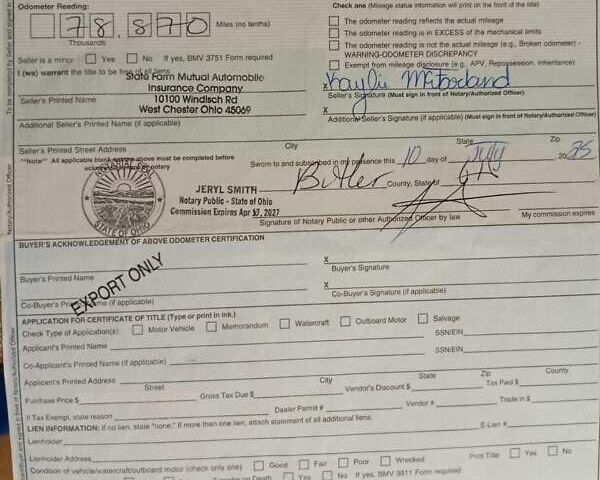 Odometer Reading:
78,870 Miles (no tenths)
Thousands
Check one (Mileage status information will print on the front of the title)
The odometer reading reflects the actual mileage
The odometer reading is in EXCESS of the mechanical limits
The odometer reading is not the actual mileage (e.g., Broken odometer) -
WARNING-ODOMETER DISCREPANCY
Exempt from mileage disclosure (e.g., APV, Repossession, Inheritance)
Seller is a minor Yes No If yes, BMV 3751 Form required
I (we) warrant the title to be free of all liens.
State Farm Mutual Automobile
Insurance Company
10100 Windisch Rd
West Chester Ohio 45069
Seller's Printed Name
X Kaylie McFarland
Seller's Signature (Must sign in front of Notary/Authorized Officer)
X
Additional Seller's Printed Name (if applicable)
Additional Seller's Signature (if applicable) (Must sign in front of Notary/Authorized Officer)
Seller's Printed Street Address City State Zip
**Note** All applicable blank entries above must be completed before
Sworn to and subscribed in my presence this 10 day of July 2025
Butler County, State of OH
NOTARIAL SEAL
STATE OF OHIO
JERYL SMITH
Notary Public - State of Ohio
Commission Expires Apr 17, 2027
Signature of Notary Public or other Authorized Officer by law My commission expires
BUYER'S ACKNOWLEDGEMENT OF ABOVE ODOMETER CERTIFICATION
X
Buyer's Printed Name Buyer's Signature
X
Co-Buyer's Printed Name (if applicable) Co-Buyer's Signature (if applicable)
EXPORT ONLY
APPLICATION FOR CERTIFICATE OF TITLE (Type or print in ink.)
Check Type of Application(s): Motor Vehicle Memorandum Watercraft Outboard Motor Salvage
Applicant's Printed Name SSN/EIN
Co-Applicant's Printed Name (if applicable) SSN/EIN
Applicant's Printed Address
Street City State Zip County
Purchase Price $ Gross Tax Due $ Vendor's Discount $ Tax Paid $
If Tax Exempt, state reason Dealer Permit # Vendor # Trade in $
LIEN INFORMATION: If no lien, state "none." If more than one lien, attach statement of all additional liens.
Lienholder E-Lien #
Lienholder Address Print Title Yes No
Condition of vehicle/watercraft/outboard motor (check only one) Good Fair Poor Wrecked
Transfer on Death Yes No If yes, BMV 3811 Form required